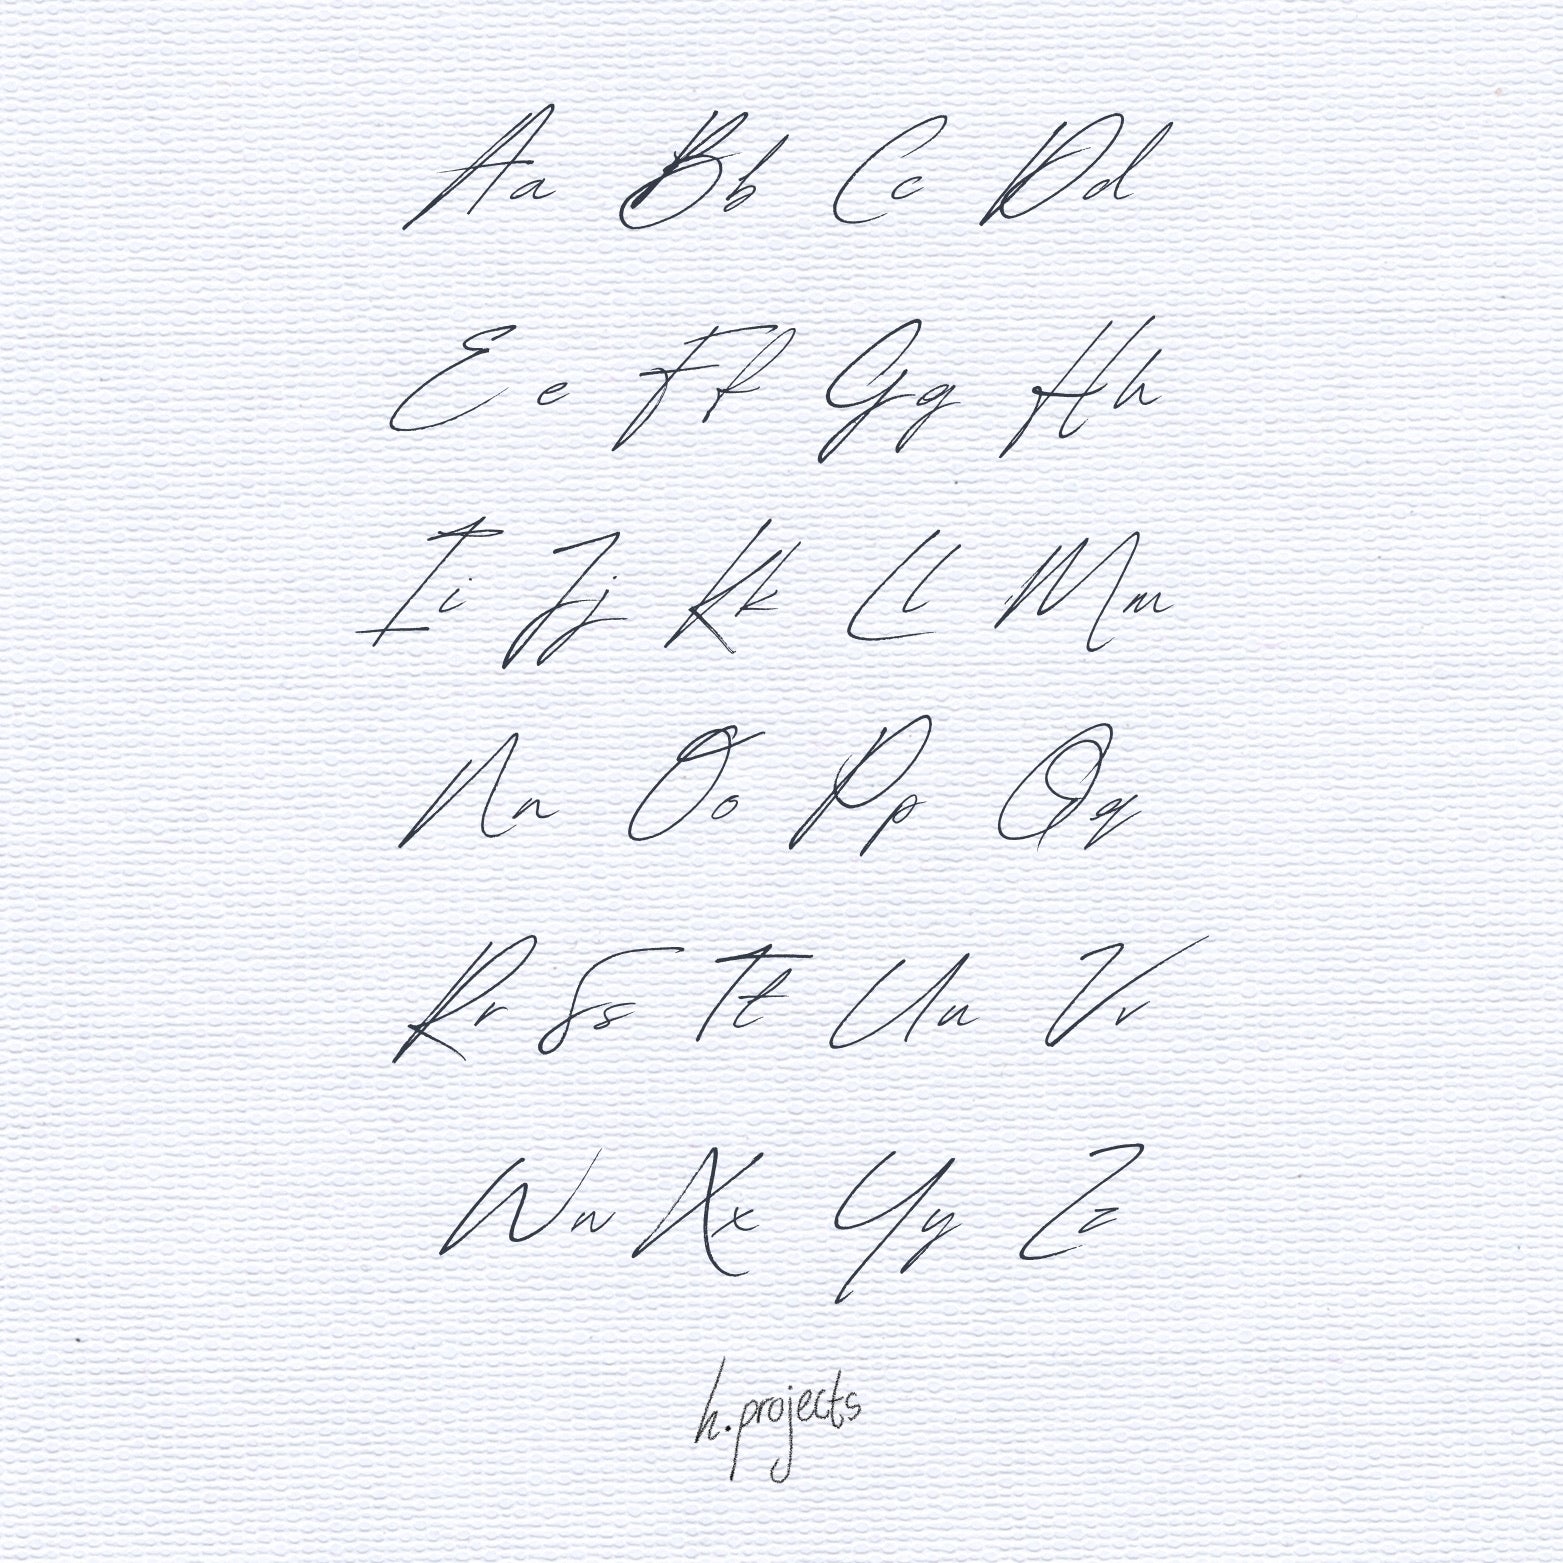 Aa Bb Cc Dd
Ee Ff Gg Hh
Ii Jj Kk Ll Mm
Nn Oo Pp Qq
Rr Ss Tt Uu Vv
Ww Xx Yy Zz
h.projects